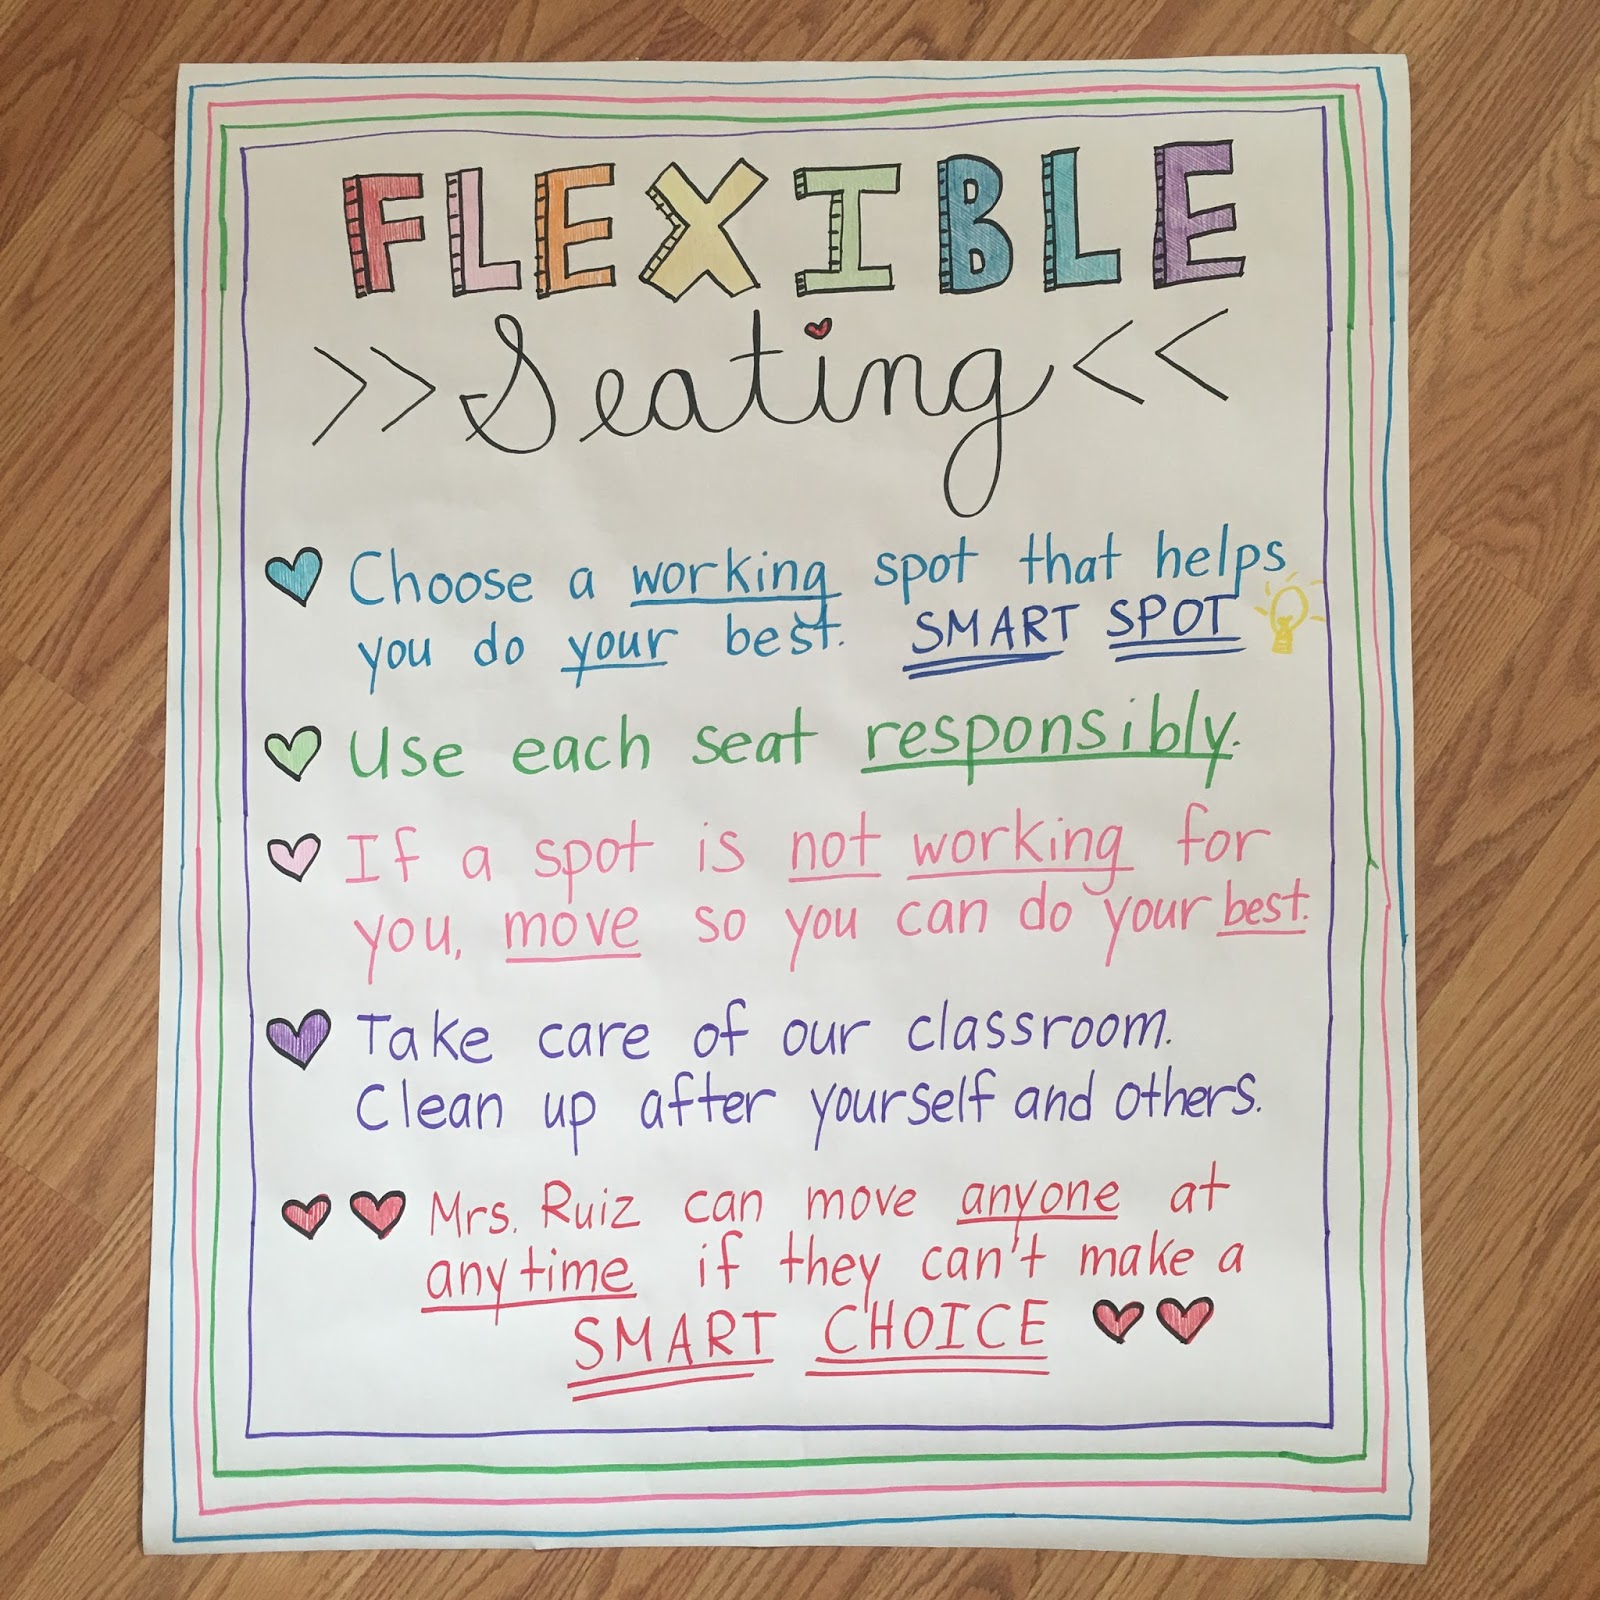 FLEXIBLE
>> Seating <<
Choose a working spot that helps
you do your best. SMART SPOT
Use each seat responsibly.
If a spot is not working for
you, move so you can do your best.
Take care of our classroom.
Clean up after yourself and others.
Mrs. Ruiz can move anyone at
anytime if they can't make a
SMART CHOICE